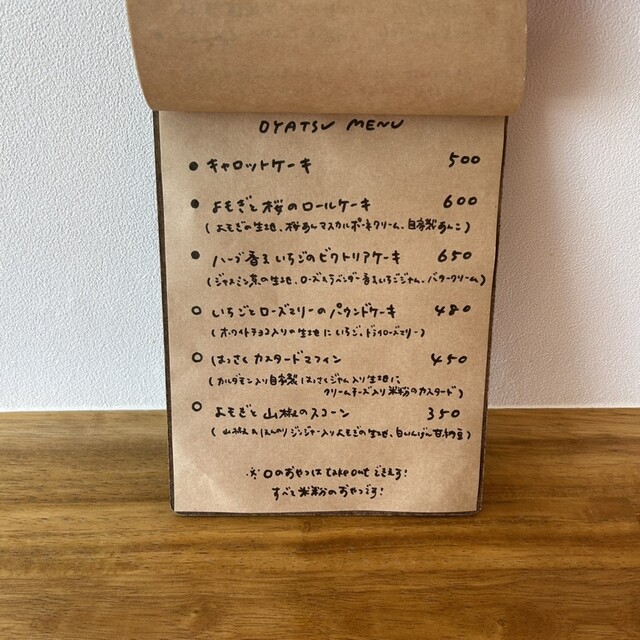 OYATSU MENU
● キャロットケーキ 500
● よもぎと桜のロールケーキ 600
(よもぎの生地、桜あんマスカルポーネクリーム、自家製あんこ)
● ハーブ香るいちごのビクトリアケーキ 650
(ジャスミン茶の生地、ローズ&ラベンダー香るいちごジャム、バタークリーム)
○ いちごとローズマリーのパウンドケーキ 480
(ホワイトチョコ入りの生地にいちご、ドライローズマリー)
○ はっさくカスタードマフィン 450
(カルダモン入り自家製はっさくジャム入り生地に、
クリームチーズ入り米粉のカスタード)
○ よもぎと山椒のスコーン 350
(山椒&ほんのりジンジャー入りよもぎの生地、白いんげん甘納豆)
※○のおやつは take out できます!
すべて米粉のおやつです!